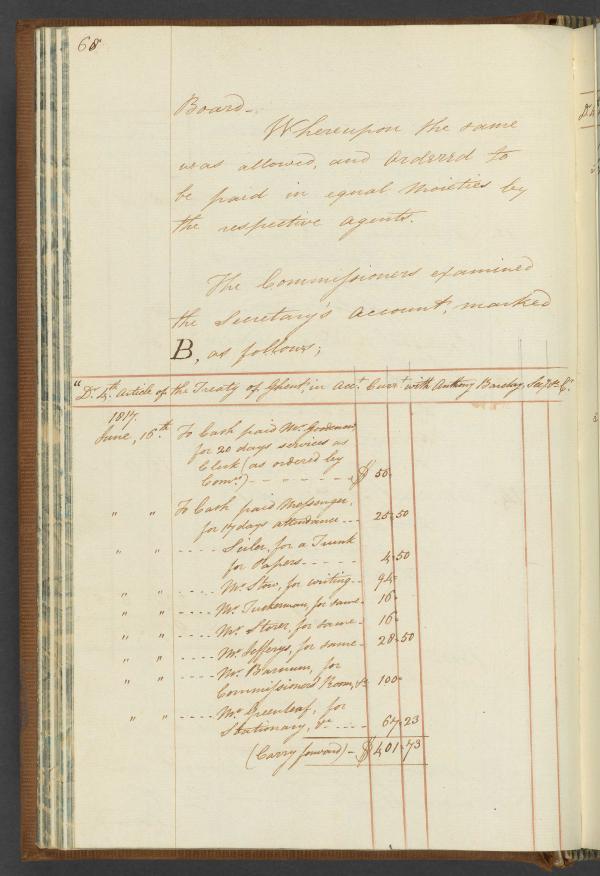 68
Board_
Whereupon the same
was allowed, and Ordered to
be paid in equal Moieties by
the respective Agents.
The Commissioners examined
the Secretary's Account, marked
B, as follows;
"Dr. 4th. Article of the Treaty of Ghent, in Acct. Currt. with Anthony Barclay, Secy. &c. Cr.
1817.
June, 16th To Cash paid Mr.
for 20 days services as
Clerk (as ordered by
Comrs.) - - - - - - $ 50-
" " To Cash paid Messenger,
for 17 days attendance - - - 25.50
" " - - - - Seiler, for a Trunk
for Papers - - - - - 4.50
" " - - - - Mr. Stow, for writing - - 94-
" " - - - - Mr. Tuckerman, for same - 16-
" " - - - - Mr. Storer, for same - 16-
" " - - - - Mr. Jefferys, for same - 28.50
" " - - - - Mr. Barnum, for
Commissioners' Room, &c. 100-
" " - - - - Mr. Greenleaf, for
Stationary, &c. - - - - - 67.23
(Carry forward) - $ 401.73